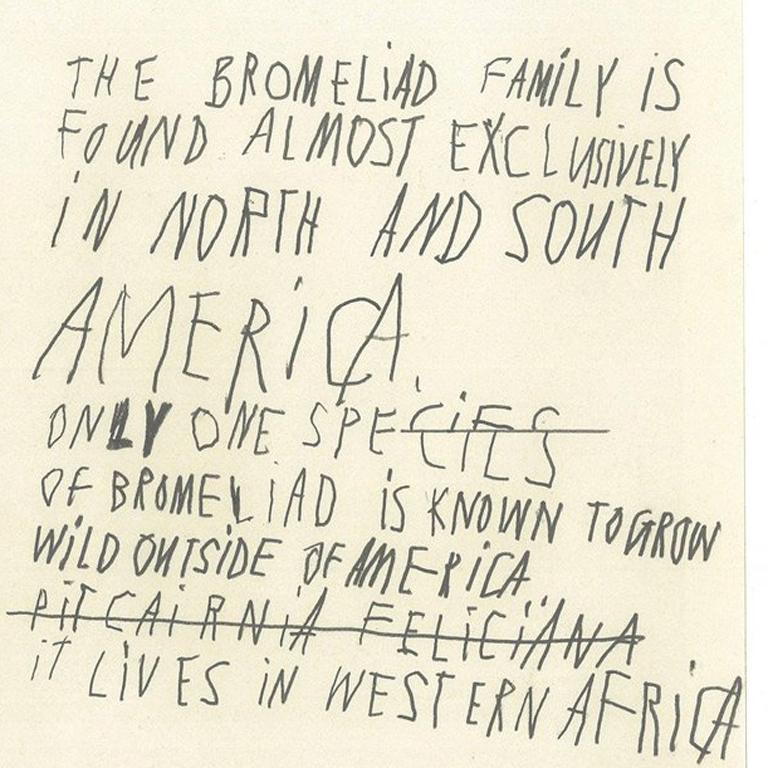 THE BROMELiAD FAMiLY iS
FOUND ALMOST EXCLUSiVELY
iN NORTH AND SOUTH
AMERiCA.
ONLY ONE SPECiES
OF BROMELiAD iS KNOWN TO GROW
WiLD OUTSiDE OF AMERiCA.
PiTCAiRNiA FELiCiANA
iT LiVES iN WESTERN AFRiCA